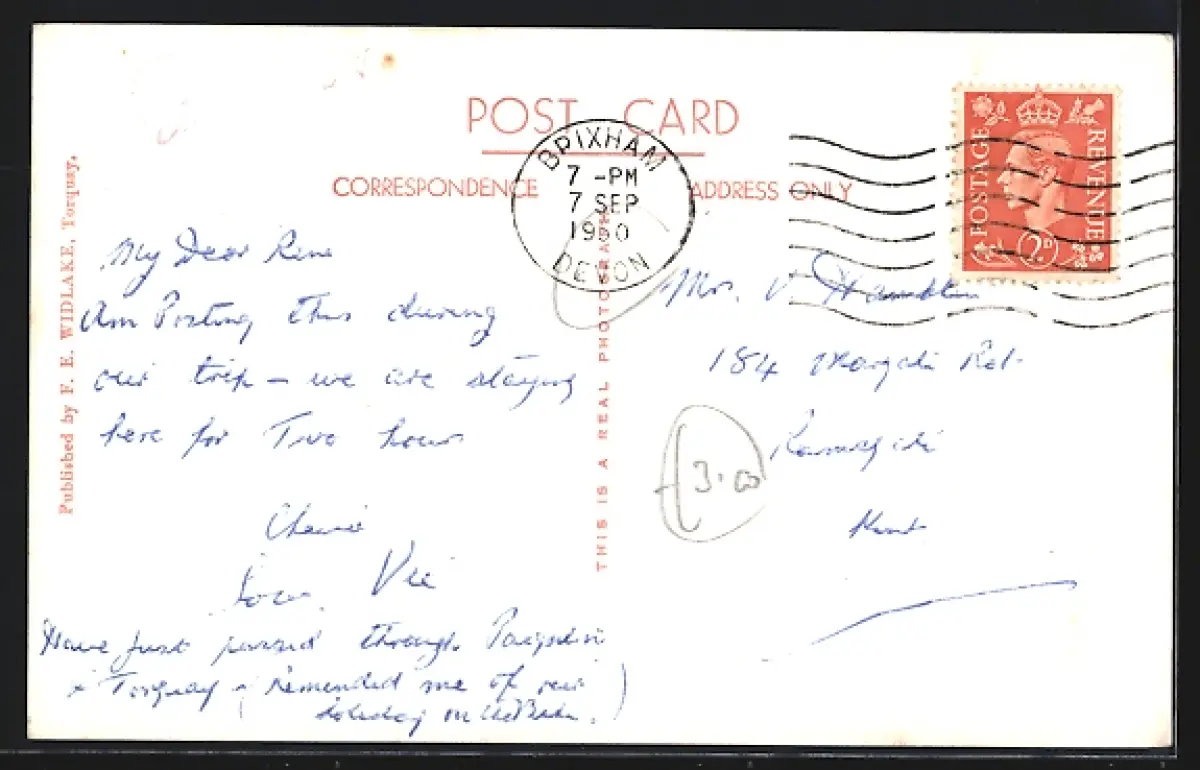 POST CARD
CORRESPONDENCE
ADDRESS ONLY
BRIXHAM
7 -PM
7 SEP
1950
DEVON
POSTAGE
REVENUE
2D
Published by F. E. WIDLAKE, Torquay.
THIS IS A REAL PHOTOGRAPH
My Dear Rene
Am Posting This during
our trip – we are staying
here for Two hours
Cheerio
Love Vie
Have just passed through Paignton
& Torquay (Remended me of our
holiday on
Mrs. V.
184 Margate Rd.
Ramsgate
Kent
3.00